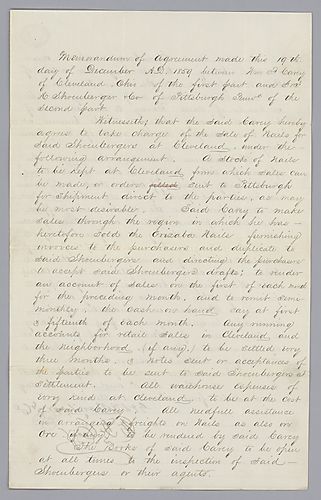 Memorandum of Agreement made this 19th
day of December A.D. 1859 between Wm F Carey
of Cleveland Ohio of the first part and
Shoenberger & Co of Pittsburgh of the
Second part
Witnesseth; that the Said Carey hereby
agrees to take charge of the Sale of Nails for
Said Shoenbergers at Cleveland, under the
following arrangement. A Stock of Nails
to be kept at Cleveland from which Sales can
be made, or orders sent to Pittsburgh
for Shipment direct to the parties, as may
be most desirable. Said Carey to make
Sales through the region in which he has
heretofore Sold the Nails furnishing
invoices to the purchasers and duplicate to
Said Shoenbergers and directing the purchasers
to accept Said Shoenbergers drafts; to render
an account of Sales on the first of each month
for the preceding month, and to remit Semi-
monthly, the Cash on hand say at first
& fifteenth of each month. Any running
accounts for retail Sales in Cleveland, and
the neighborhood, if any, to be Settled every
three months, & notes sent or acceptances of
the parties to be sent to Said Shoenbergers at
Settlement. All warehouse expenses of
every kind at Cleveland, to be at the cost
of Said Carey. All needfull assistance
in arranging freights on Nails as also on
Ore to be rendered by Said Carey
The Books of Said Carey to be open
at all times to the inspection of Said
Shoenbergers or their agents.